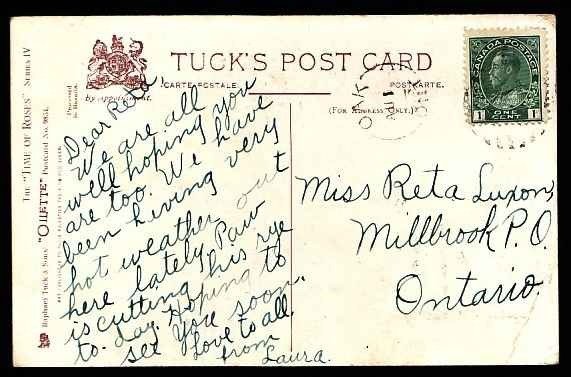 TUCK'S POST CARD
CARTE POSTALE
POSTKARTE.
(FOR ADDRESS ONLY.)
By Appointment.
The "TIME OF ROSES" SERIES IV
Raphael Tuck & Sons' "OILETTE" Postcard No. 9851.
CANADA POSTAGE
1 1
ONE CENT
OAK
AU 1
Dear Reta
We are all
well hoping you
are too. We have
been having very
hot weather out
here lately. Paw
is cutting his rye
to-day. Hoping to
see you soon.
Love to all.
from
Laura.
Miss Reta Luxon,
Millbrook P.O.
Ontario.